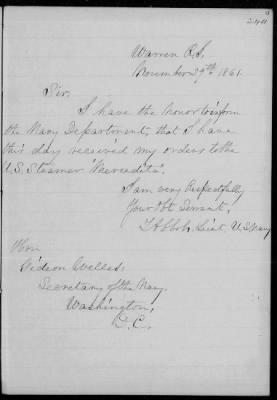 240
Warren R.I.
November 29th 1861.
Sir:
I have the honor to inform
the Navy Department, that I have
this day received my orders to the
U.S. Steamer "Mercedita".
I am very Respectfully
Your Obt Servant,
Lieut, U.S. Navy
Hon
Gideon Welles.
Secretary of the Navy.
Washington,
D.C.